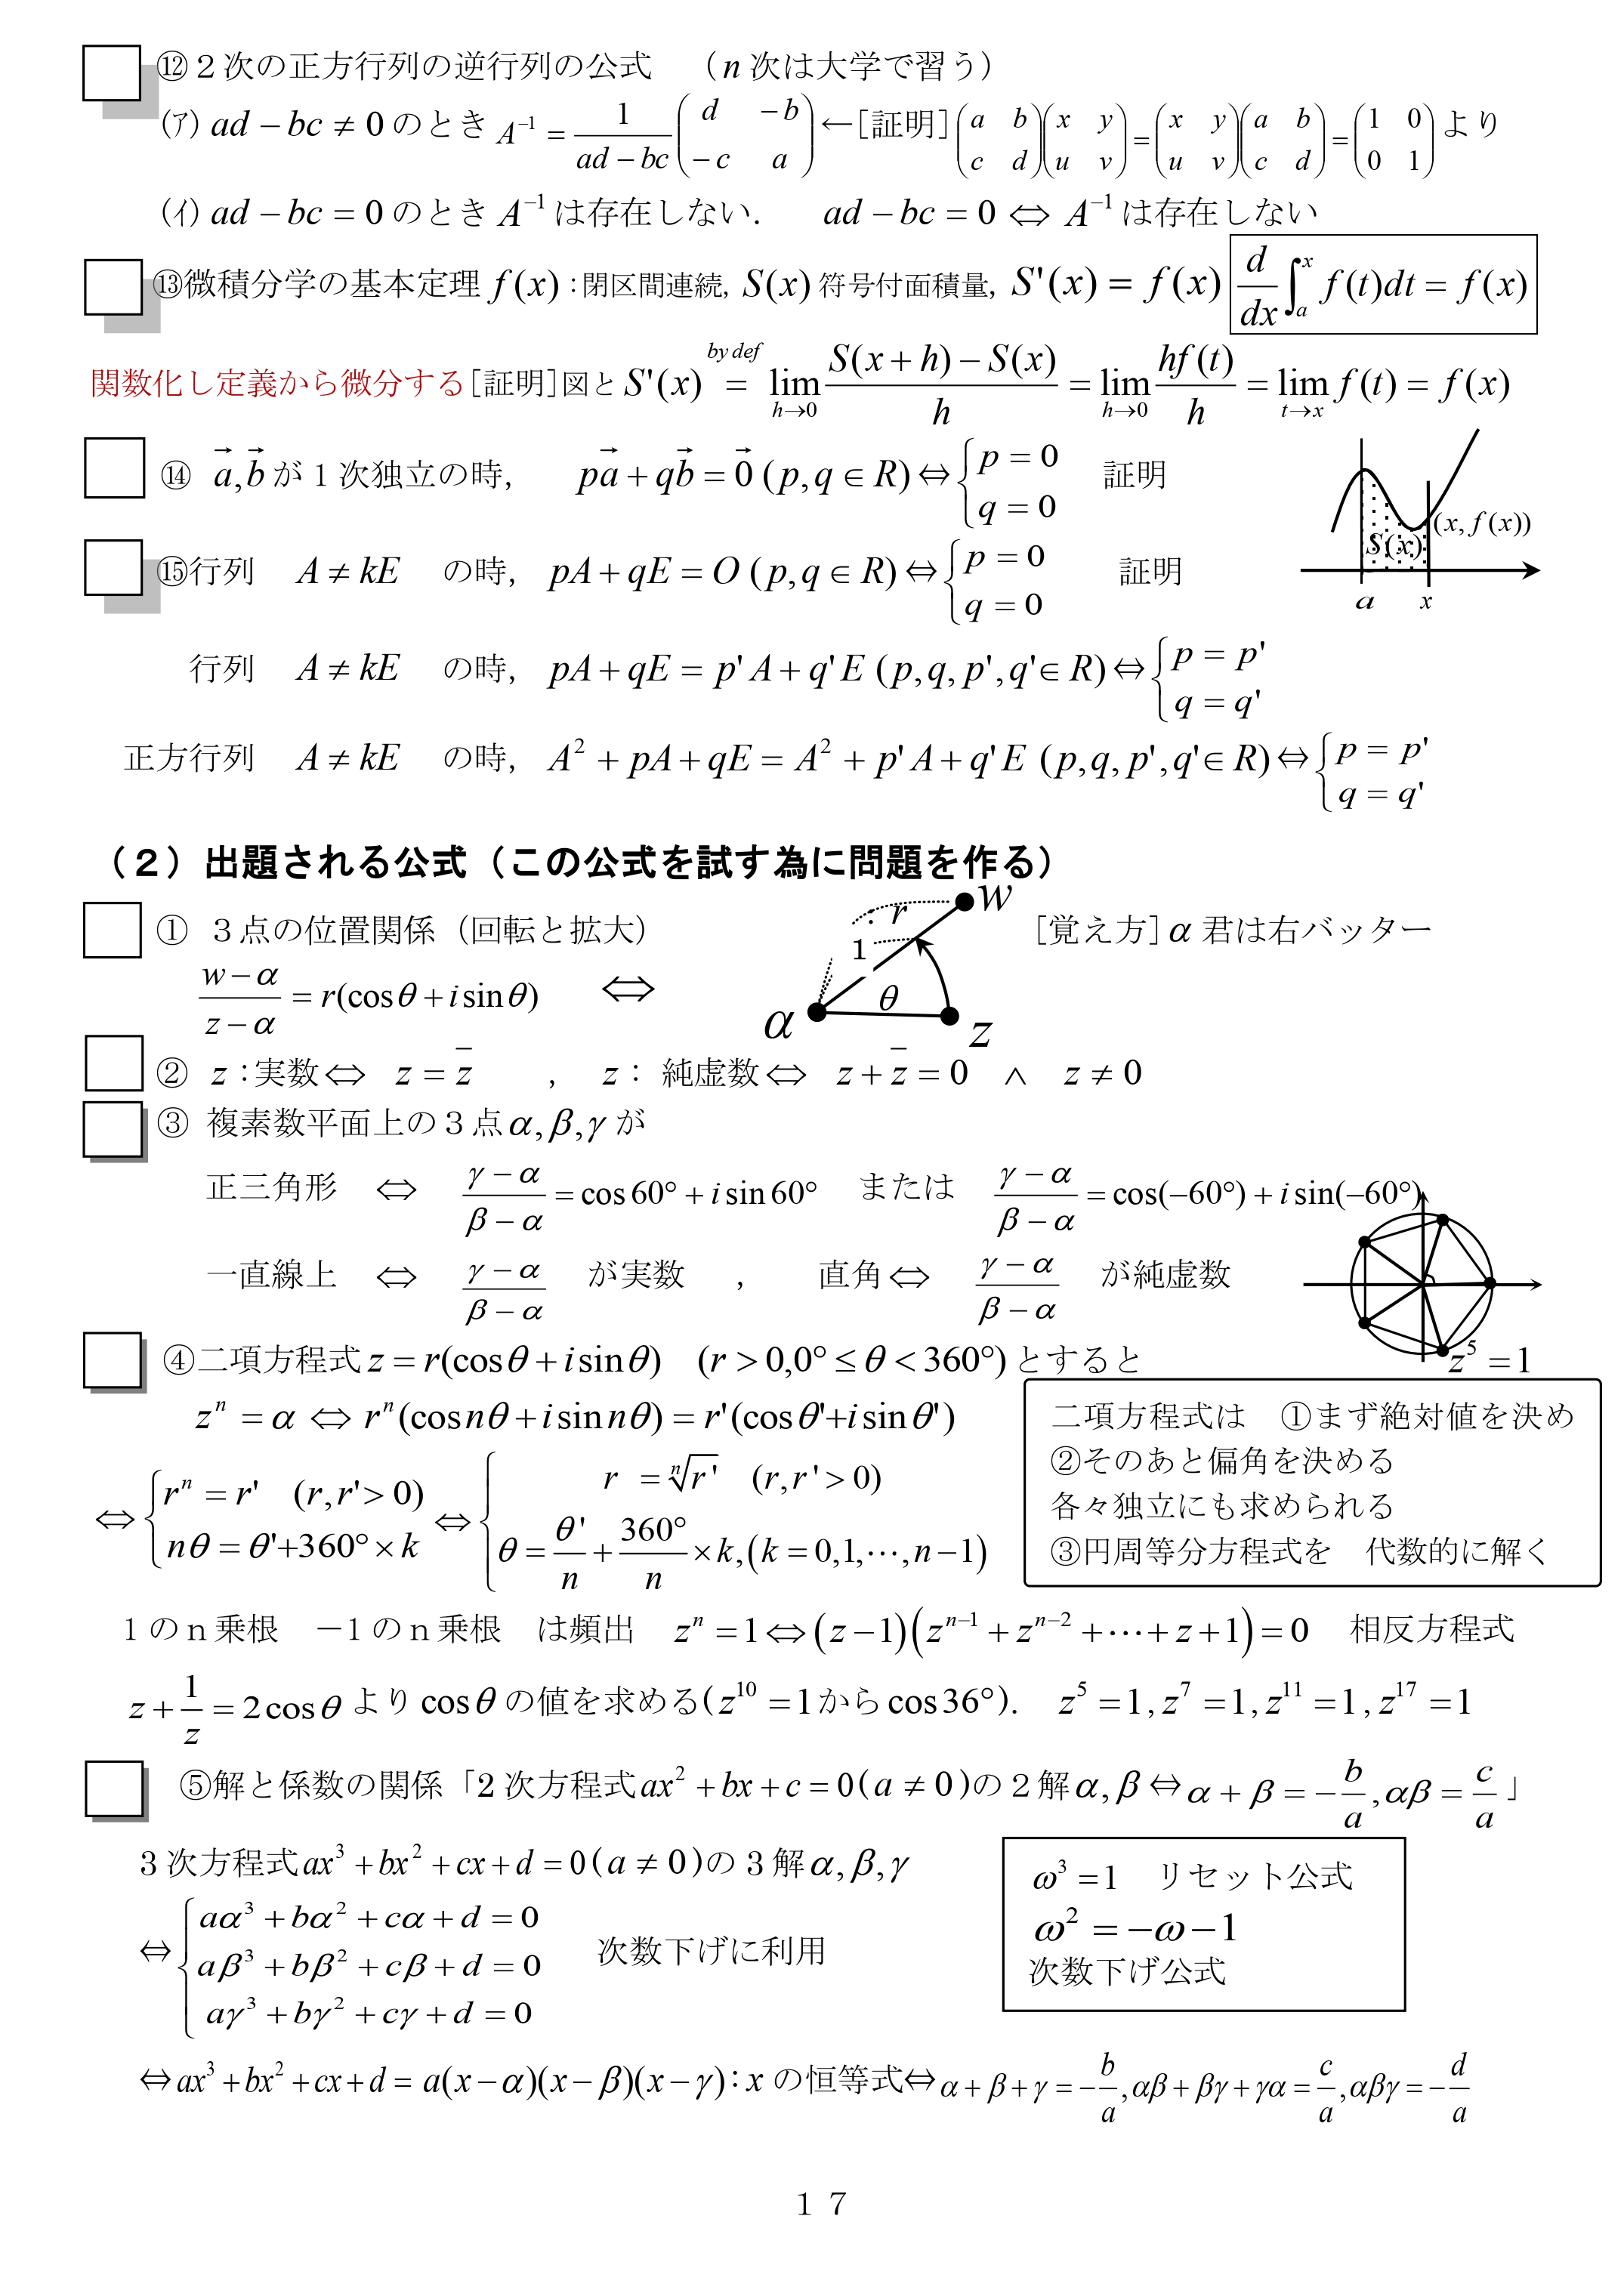 ⑫２次の正方行列の逆行列の公式　（n 次は大学で習う）
(ｱ) ad − bc ≠ 0 のとき A⁻¹ = 1/(ad − bc) (d −b ; −c a) ←[証明] (a b ; c d)(x y ; u v) = (x y ; u v)(a b ; c d) = (1 0 ; 0 1) より
(ｲ) ad − bc = 0 のとき A⁻¹ は存在しない.　ad − bc = 0 ⇔ A⁻¹ は存在しない
⑬微積分学の基本定理 f(x) : 閉区間連続, S(x) 符号付面積量, S'(x) = f(x) d/dx ∫ₐˣ f(t)dt = f(x)
関数化し定義から微分する [証明] 図と S'(x) by def = lim_{h→0} (S(x + h) − S(x))/h = lim_{h→0} hf(t)/h = lim_{t→x} f(t) = f(x)
⑭ a⃗, b⃗ が１次独立の時,　pa⃗ + qb⃗ = 0⃗ (p, q ∈ R) ⇔ { p = 0 ; q = 0　証明
(x, f(x))
S(x)
a　x
⑮行列　A ≠ kE　の時,　pA + qE = O (p, q ∈ R) ⇔ { p = 0 ; q = 0　証明
行列　A ≠ kE　の時,　pA + qE = p'A + q'E (p, q, p', q' ∈ R) ⇔ { p = p' ; q = q'
正方行列　A ≠ kE　の時,　A² + pA + qE = A² + p'A + q'E (p, q, p', q' ∈ R) ⇔ { p = p' ; q = q'
（２）出題される公式（この公式を試す為に問題を作る）
①　３点の位置関係（回転と拡大）　[覚え方] α 君は右バッター
(w − α)/(z − α) = r(cosθ + i sinθ)　⇔
w
: r
1
θ
α　z
②　z : 実数 ⇔ z = z̄　,　z : 純虚数 ⇔ z + z̄ = 0 ∧ z ≠ 0
③　複素数平面上の３点 α, β, γ が
正三角形　⇔　(γ − α)/(β − α) = cos 60° + i sin 60°　または　(γ − α)/(β − α) = cos(−60°) + i sin(−60°)
一直線上　⇔　(γ − α)/(β − α)　が実数　,　直角 ⇔　(γ − α)/(β − α)　が純虚数
z⁵ = 1
④二項方程式 z = r(cosθ + i sinθ)　(r > 0, 0° ≤ θ < 360°) とすると
zⁿ = α ⇔ rⁿ(cos nθ + i sin nθ) = r'(cosθ' + i sinθ')
⇔ { rⁿ = r'　(r, r' > 0) ; nθ = θ' + 360° × k ⇔ { r = ⁿ√r'　(r, r' > 0) ; θ = θ'/n + 360°/n × k, (k = 0,1,⋯, n − 1)
二項方程式は　①まず絶対値を決め
②そのあと偏角を決める
各々独立にも求められる
③円周等分方程式を　代数的に解く
１のｎ乗根　－１のｎ乗根　は頻出　zⁿ = 1 ⇔ (z − 1)(zⁿ⁻¹ + zⁿ⁻² + ⋯ + z + 1) = 0　相反方程式
z + 1/z = 2cosθ より cosθ の値を求める (z¹⁰ = 1 から cos 36°).　z⁵ = 1, z⁷ = 1, z¹¹ = 1, z¹⁷ = 1
⑤解と係数の関係「2 次方程式 ax² + bx + c = 0 (a ≠ 0) の２解 α, β ⇔ α + β = −b/a, αβ = c/a 」
３次方程式 ax³ + bx² + cx + d = 0 (a ≠ 0) の３解 α, β, γ
⇔ { aα³ + bα² + cα + d = 0
aβ³ + bβ² + cβ + d = 0　次数下げに利用
aγ³ + bγ² + cγ + d = 0
ω³ = 1　リセット公式
ω² = −ω − 1
次数下げ公式
⇔ ax³ + bx² + cx + d = a(x − α)(x − β)(x − γ) : x の恒等式 ⇔ α + β + γ = −b/a, αβ + βγ + γα = c/a, αβγ = −d/a
１７